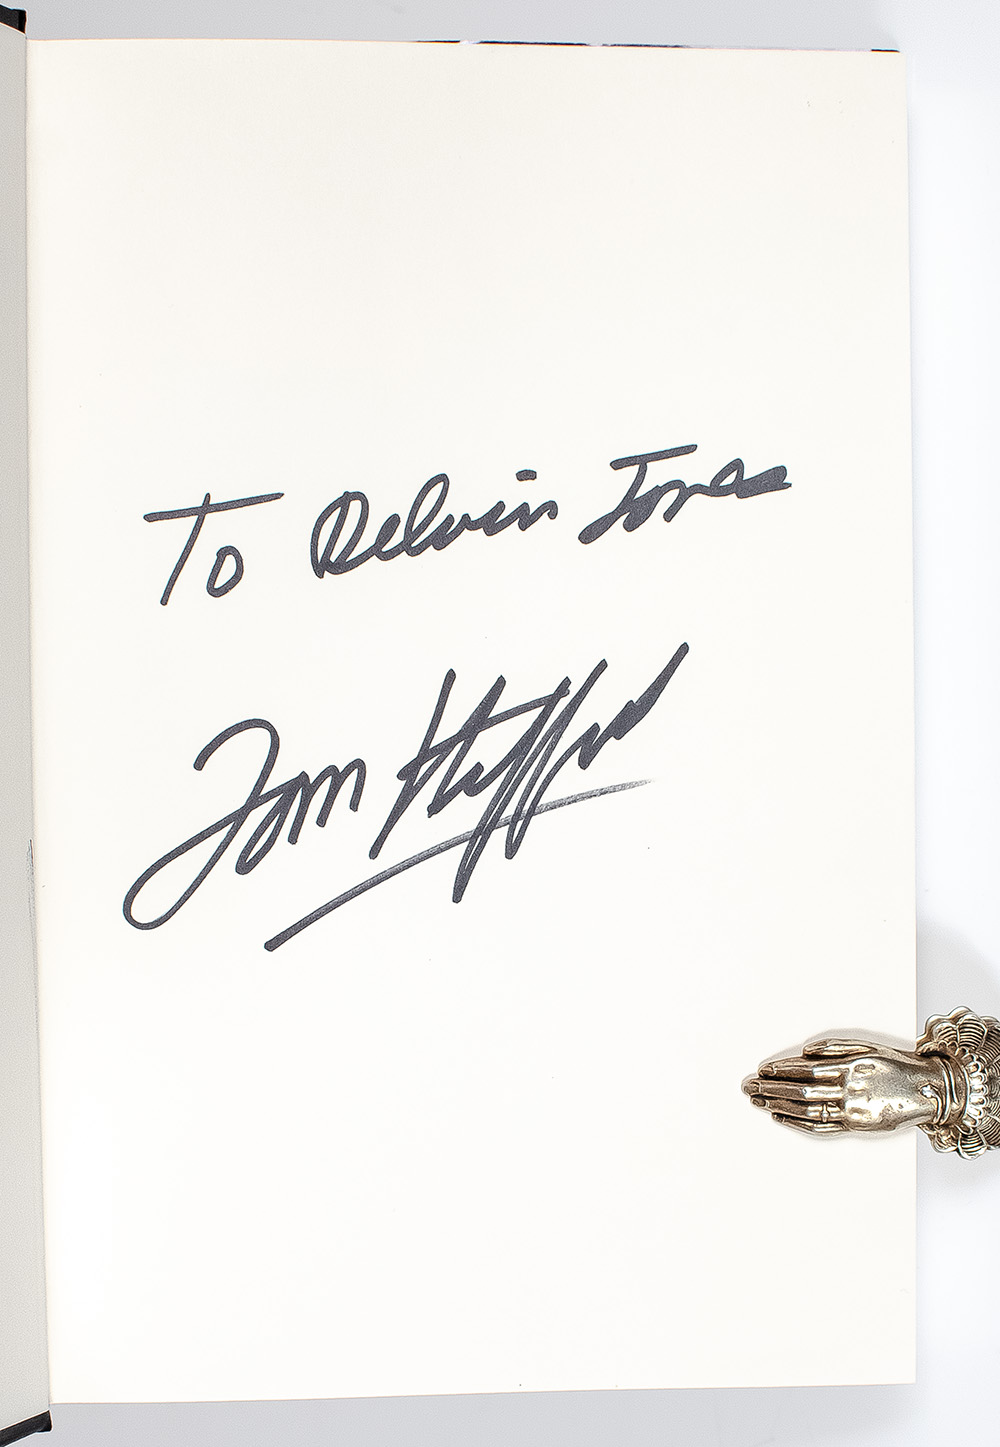 To Delvin Jones
Tom Hufford